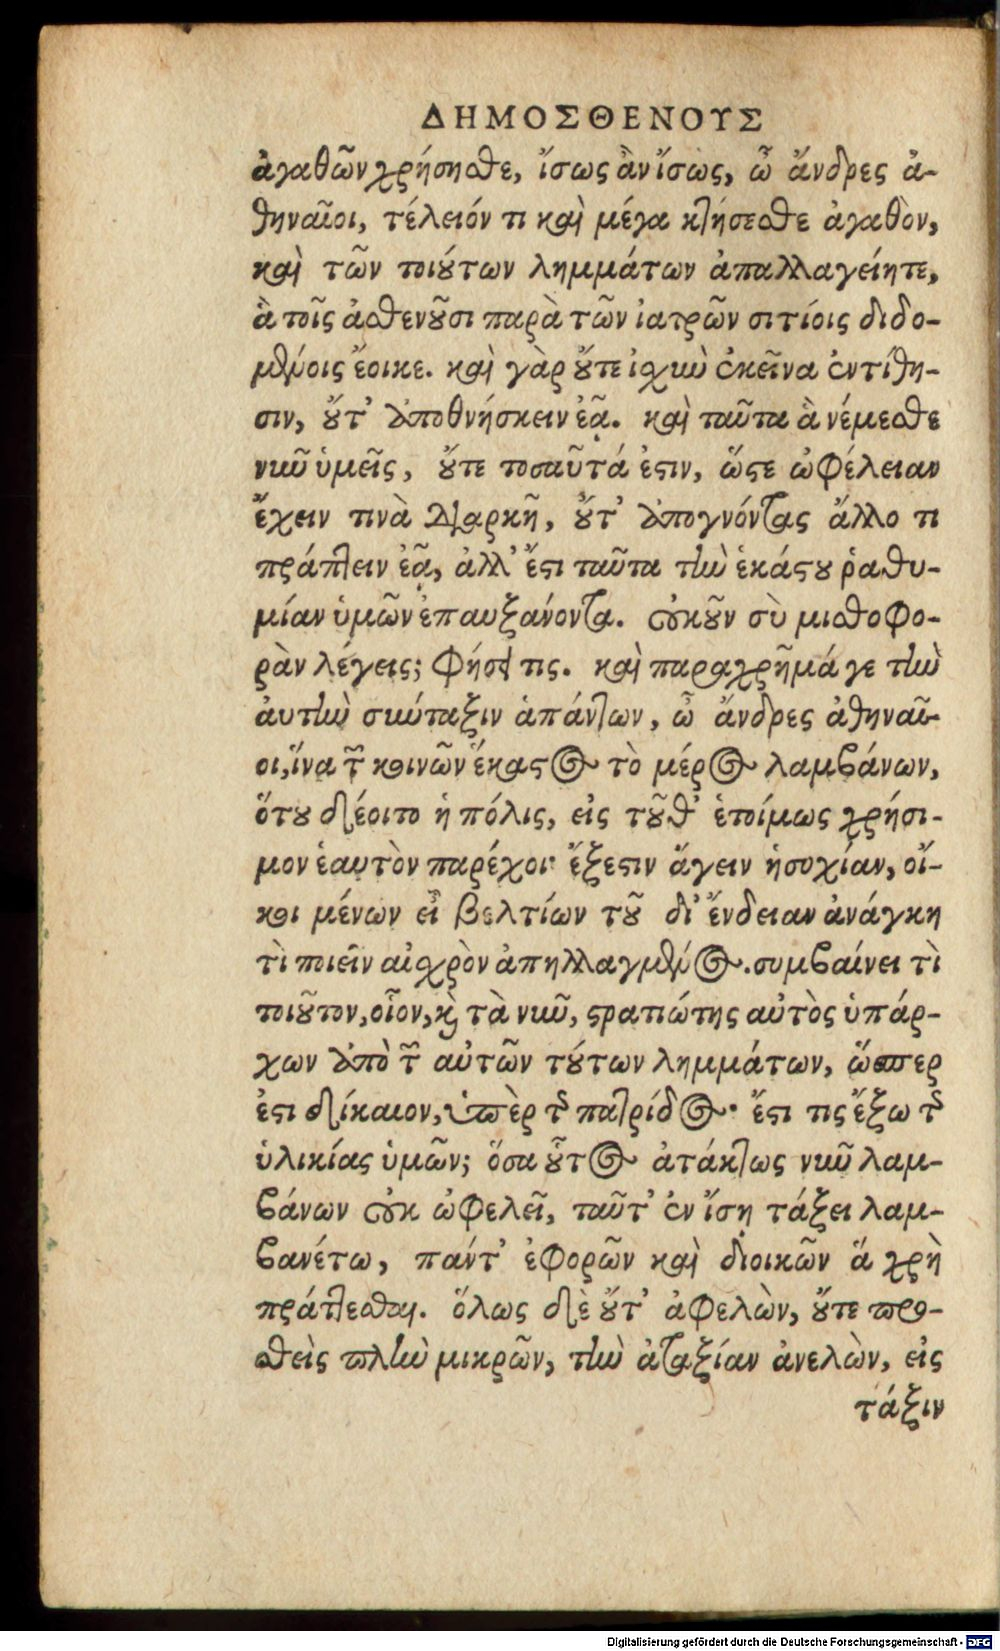 ΔΗΜΟΣΘΕΝΟΥΣ
ἀγαθῶν χρήσησθε, ἴσως ἂν ἴσως, ὦ ἄνδρες ἀ-
θηναῖοι, τέλειόν τι καὶ μέγα κτήσεσθε ἀγαθὸν,
καὶ τῶν τοιούτων λημμάτων ἀπαλλαγείητε,
ἃ τοῖς ἀσθενοῦσι παρὰ τῶν ἰατρῶν σιτίοις διδο-
μένοις ἔοικε. καὶ γὰρ οὔτε ἰσχὺν ἐκεῖνα ἐντίθη-
σιν, οὔτ' ἀποθνήσκειν ἐᾷ. καὶ ταῦτα ἃ νέμεσθε
νῦν ὑμεῖς, οὔτε τοσαῦτά ἐστιν, ὥστε ὠφέλειαν
ἔχειν τινὰ διαρκῆ, οὔτ' ἀπογνόντας ἄλλο τι
πράττειν ἐᾷ, ἀλλ' ἔστι ταῦτα τὴν ἑκάστου ῥαθυ-
μίαν ὑμῶν ἐπαυξάνοντα. οὐκοῦν σὺ μισθοφο-
ρὰν λέγεις; φήσει τις. καὶ παραχρῆμά γε τὴν
ἀυτὴν σύνταξιν ἁπάντων, ὦ ἄνδρες ἀθηναῖ-
οι, ἵνα τῶν κοινῶν ἕκαστος τὸ μέρος λαμβάνων,
ὅτου δέοιτο ἡ πόλις, εἰς τοῦθ' ἑτοίμως χρήσι-
μον ἑαυτὸν παρέχοι· ἔξεστιν ἄγειν ἡσυχίαν, οἴ-
κοι μένων εἶ βελτίων τοῦ δι' ἔνδειαν ἀνάγκη
τὶ ποιεῖν αἰσχρὸν ἀπηλλαγμένος. συμβαίνει τὶ
τοιοῦτον, οἷον, καὶ τὰ νῦν, στρατιώτης αὐτὸς ὑπάρ-
χων ἀπὸ τῶν αὐτῶν τούτων λημμάτων, ὥσπερ
ἐστι δίκαιον, ὑπὲρ τῆς πατρίδος· ἔστι τις ἔξω τῆς
ὑλικίας ὑμῶν; ὅσα οὗτος ἀτάκτως νῦν λαμ-
βάνων οὐκ ὠφελεῖ, ταῦτ' ἐν ἴση τάξει λαμ-
βανέτω, πάντ' ἐφορῶν καὶ διοικῶν ἅ χρὴ
πράττεσθαι. ὅλως δὲ οὔτ' ἀφελὼν, οὔτε προ-
σθεὶς πλὴν μικρῶν, τὴν ἀταξίαν ἀνελὼν, εἰς
τάξιν
Digitalisierung gefördert durch die Deutsche Forschungsgemeinschaft - DFG